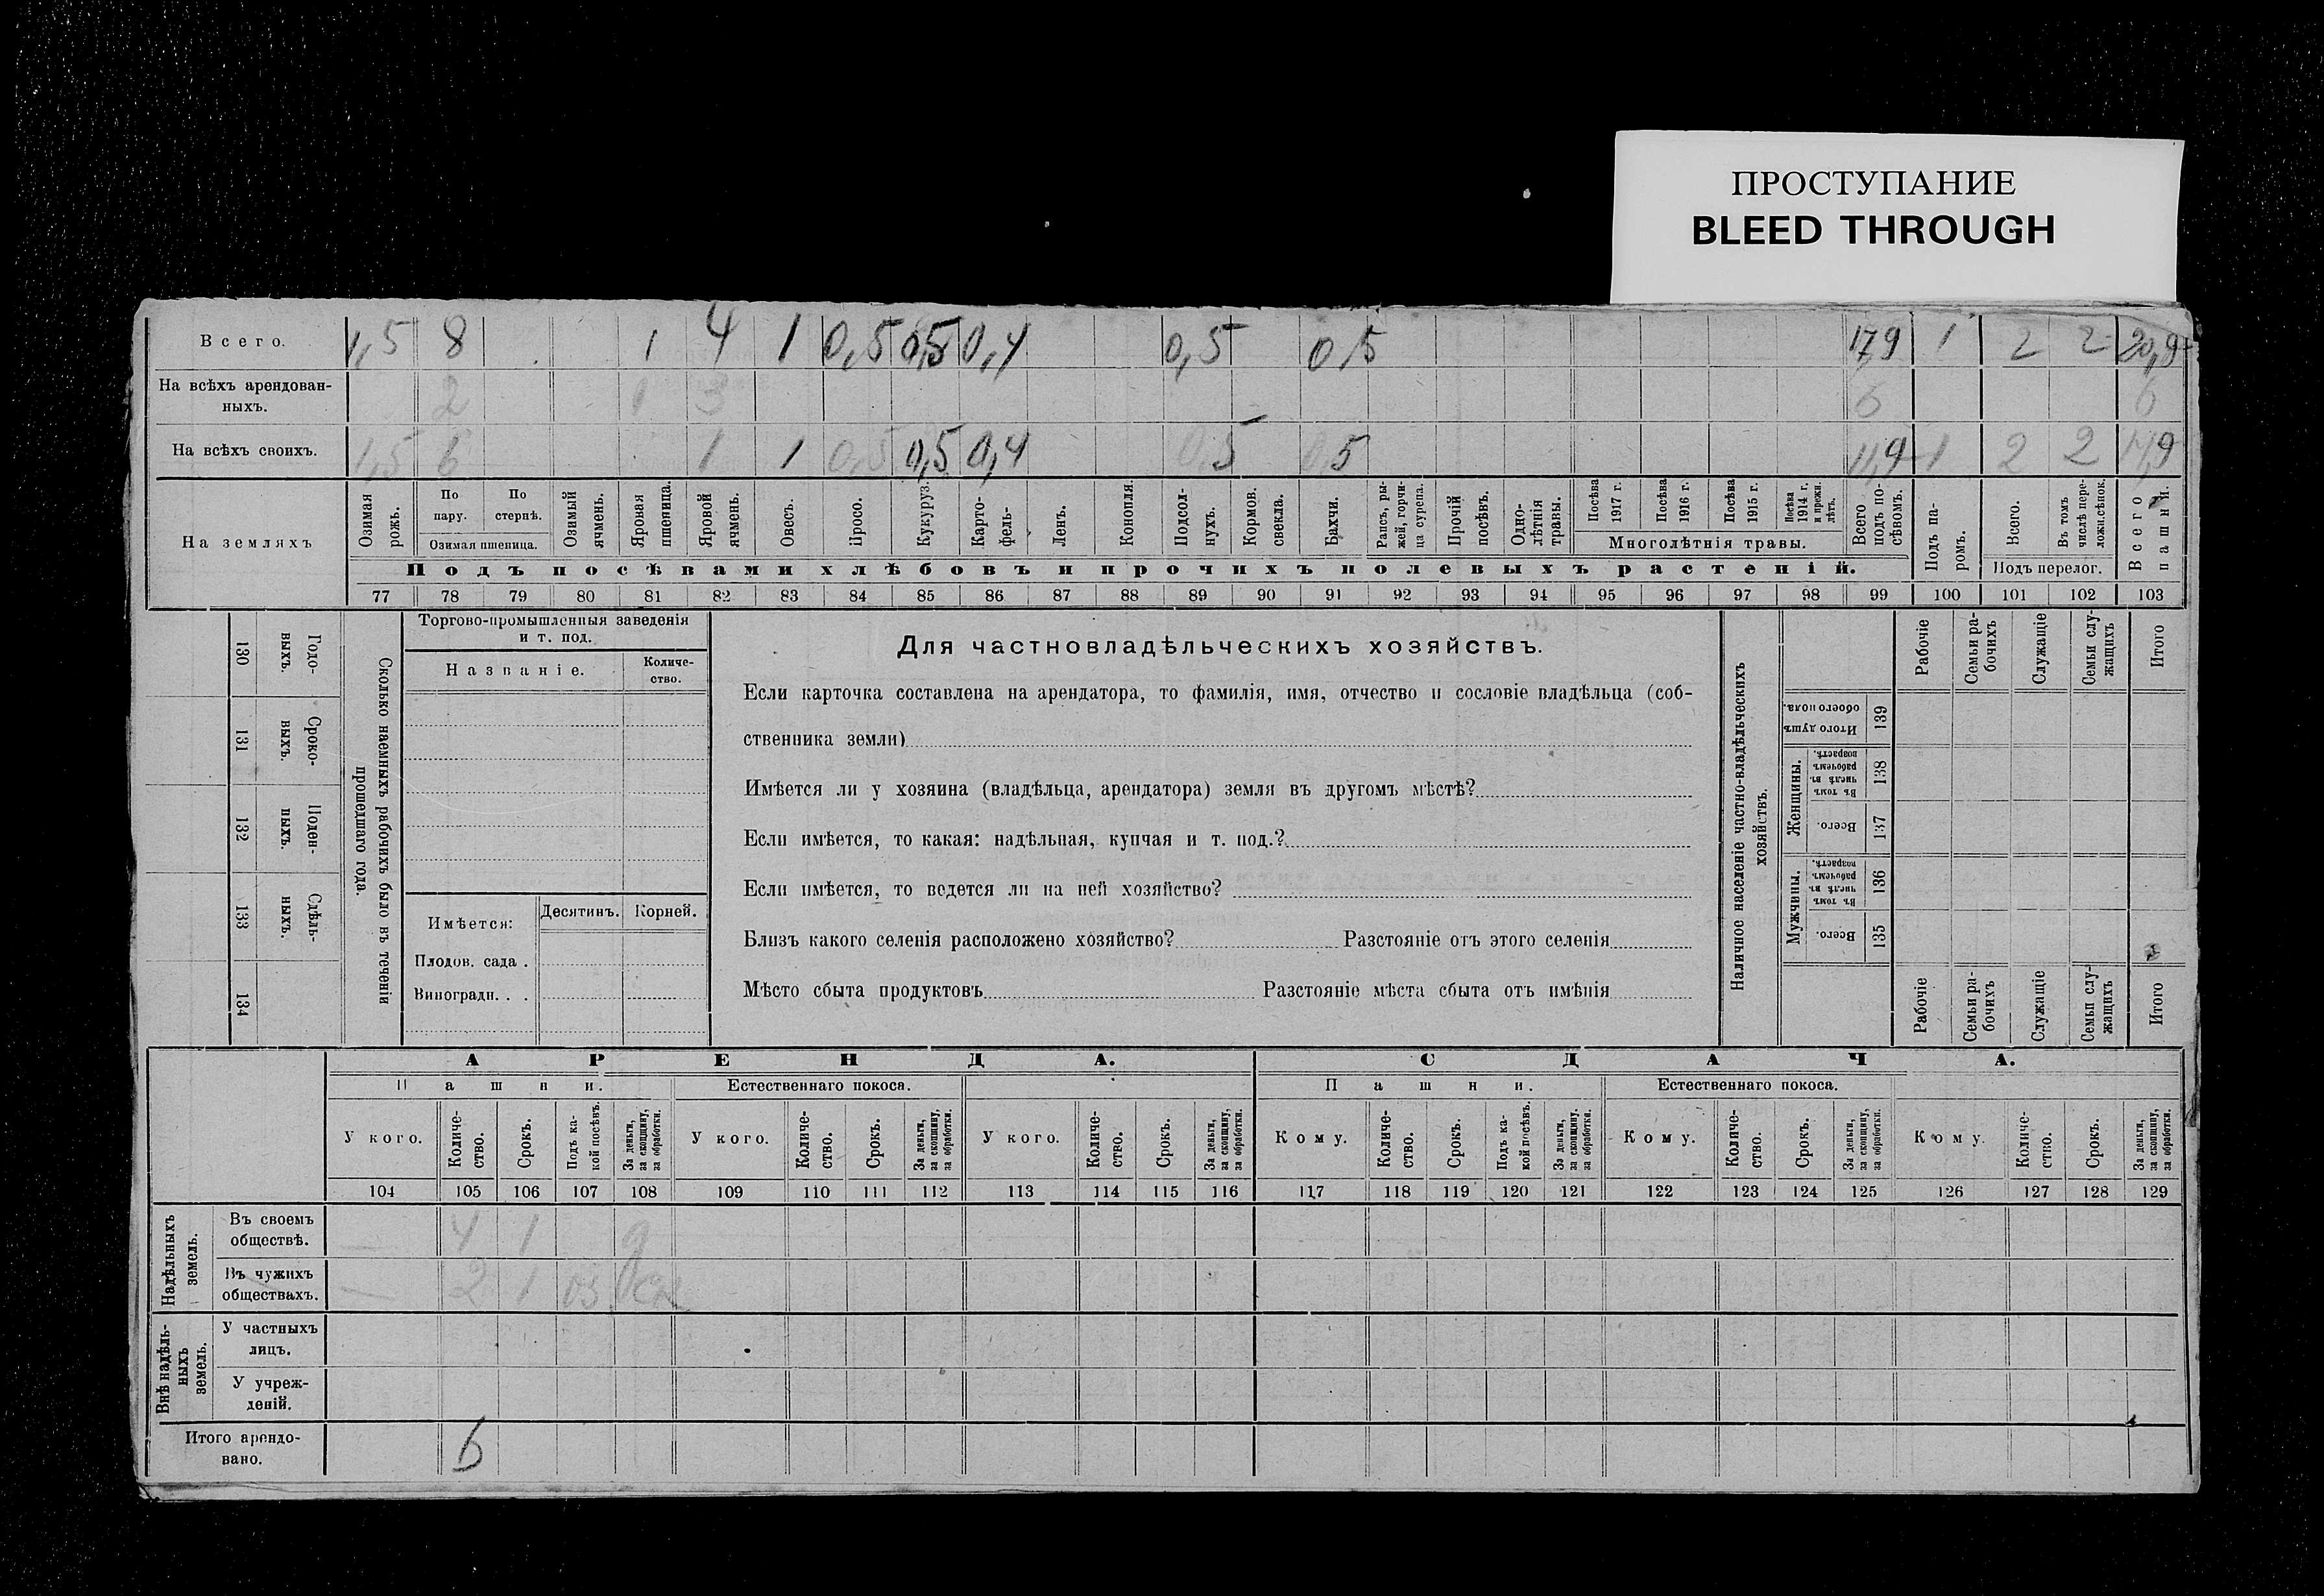 ПРОСТУПАНИЕ
BLEED THROUGH
Всего. 1,5 8 1 4 1 0,5 0,5 0,4 0,5 0,5 17,9 1 2 2 20,9
На всѣхъ арендован-
ныхъ. 2 1 3 6 6
На всѣхъ своихъ. 1,5 6 1 1 0,5 0,5 0,4 0,5 0,5 11,9 1 2 2 14,9
На земляхъ
Озимая рожь.
По пару.
По стернѣ.
Озимая пшеница.
Озимый ячмень.
Яровая пшеница.
Яровой ячмень.
Овесъ.
Просо.
Кукуруз.
Карто-
фель-
Ленъ.
Конопля.
Подсол-
нухъ.
Кормов. свекла.
Бахчи.
Рапсъ, ры-
жей, горчи-
ца сурепа.
Прочій посѣвъ.
Одно-
лѣтнія травы.
Посѣва 1917 г.
Посѣва 1916 г.
Посѣва 1915 г.
Посѣва 1914 г. и прежн. лѣтъ.
Многолѣтнія травы.
Всего подъ по-
сѣвомъ.
Подъ па-
ромъ.
Всего.
Въ томъ числѣ пере-
ложн.сѣнок.
Подъ перелог.
Всего пашни.
Подъ посѣвами хлѣбовъ и прочихъ полевыхъ растеній.
77 78 79 80 81 82 83 84 85 86 87 88 89 90 91 92 93 94 95 96 97 98 99 100 101 102 103
130 Годо-
выхъ.
131 Сроко-
выхъ.
132 Поден-
ныхъ.
133 Сдѣль-
ныхъ.
134
Сколько наемныхъ рабочихъ было въ теченіи
прошедшаго года.
Торгово-промышленныя заведенія
и т. под.
Названіе.
Количе-
ство.
Имѣется: Десятинъ. Корней.
Плодов. сада .
Виноградн. . .
Для частновладѣльческихъ хозяйствъ.
Если карточка составлена на арендатора, то фамилія, имя, отчество и сословіе владѣльца (соб-
ственника земли)
Имѣется ли у хозяина (владѣльца, арендатора) земля въ другомъ мѣстѣ?
Если имѣется, то какая: надѣльная, купчая и т. под.?
Если имѣется, то ведется ли на ней хозяйство?
Близъ какого селенія расположено хозяйство? Разстояніе отъ этого селенія
Мѣсто сбыта продуктовъ Разстояніе мѣста сбыта отъ имѣнія
Наличное населеніе частно-владѣльческихъ
хозяйствъ.
Рабочіе
Семьи ра-
бочихъ
Служащіе
Семьи слу-
жащихъ
Итого
Итого душъ обоего пола. 139
Женщины.
Въ томъ числѣ въ рабочемъ возрастѣ. 138
Всего. 137
Мужчины.
Въ томъ числѣ въ рабочемъ возрастѣ. 136
Всего. 135
Рабочіе
Семьи ра-
бочихъ
Служащіе
Семьи слу-
жащихъ
Итого
АРЕНДА. СДАЧА.
Пашни. Естественнаго покоса. Пашни. Естественнаго покоса.
У кого.
Количе-
ство.
Срокъ.
Подъ ка-
кой посѣвъ.
За деньги, за скопщину, за обработки.
У кого.
Количе-
ство.
Срокъ.
За деньги, за скопщину, за обработки.
У кого.
Количе-
ство.
Срокъ.
За деньги, за скопщину, за обработки.
Кому.
Количе-
ство.
Срокъ.
Подъ ка-
кой посѣвъ.
За деньги, за скопщину, за обработки.
Кому.
Количе-
ство.
Срокъ.
За деньги, за скопщину, за обработки.
Кому.
Количе-
ство.
Срокъ.
За деньги, за скопщину, за обработки.
104 105 106 107 108 109 110 111 112 113 114 115 116 117 118 119 120 121 122 123 124 125 126 127 128 129
Надѣльныхъ земель.
Въ своемъ
обществѣ. 4 1 д
Въ чужихъ
обществахъ. 2 1 оз
Внѣ надѣль-
ныхъ земель.
У частныхъ
лицъ.
У учреж-
деній.
Итого арендо-
вано. 6